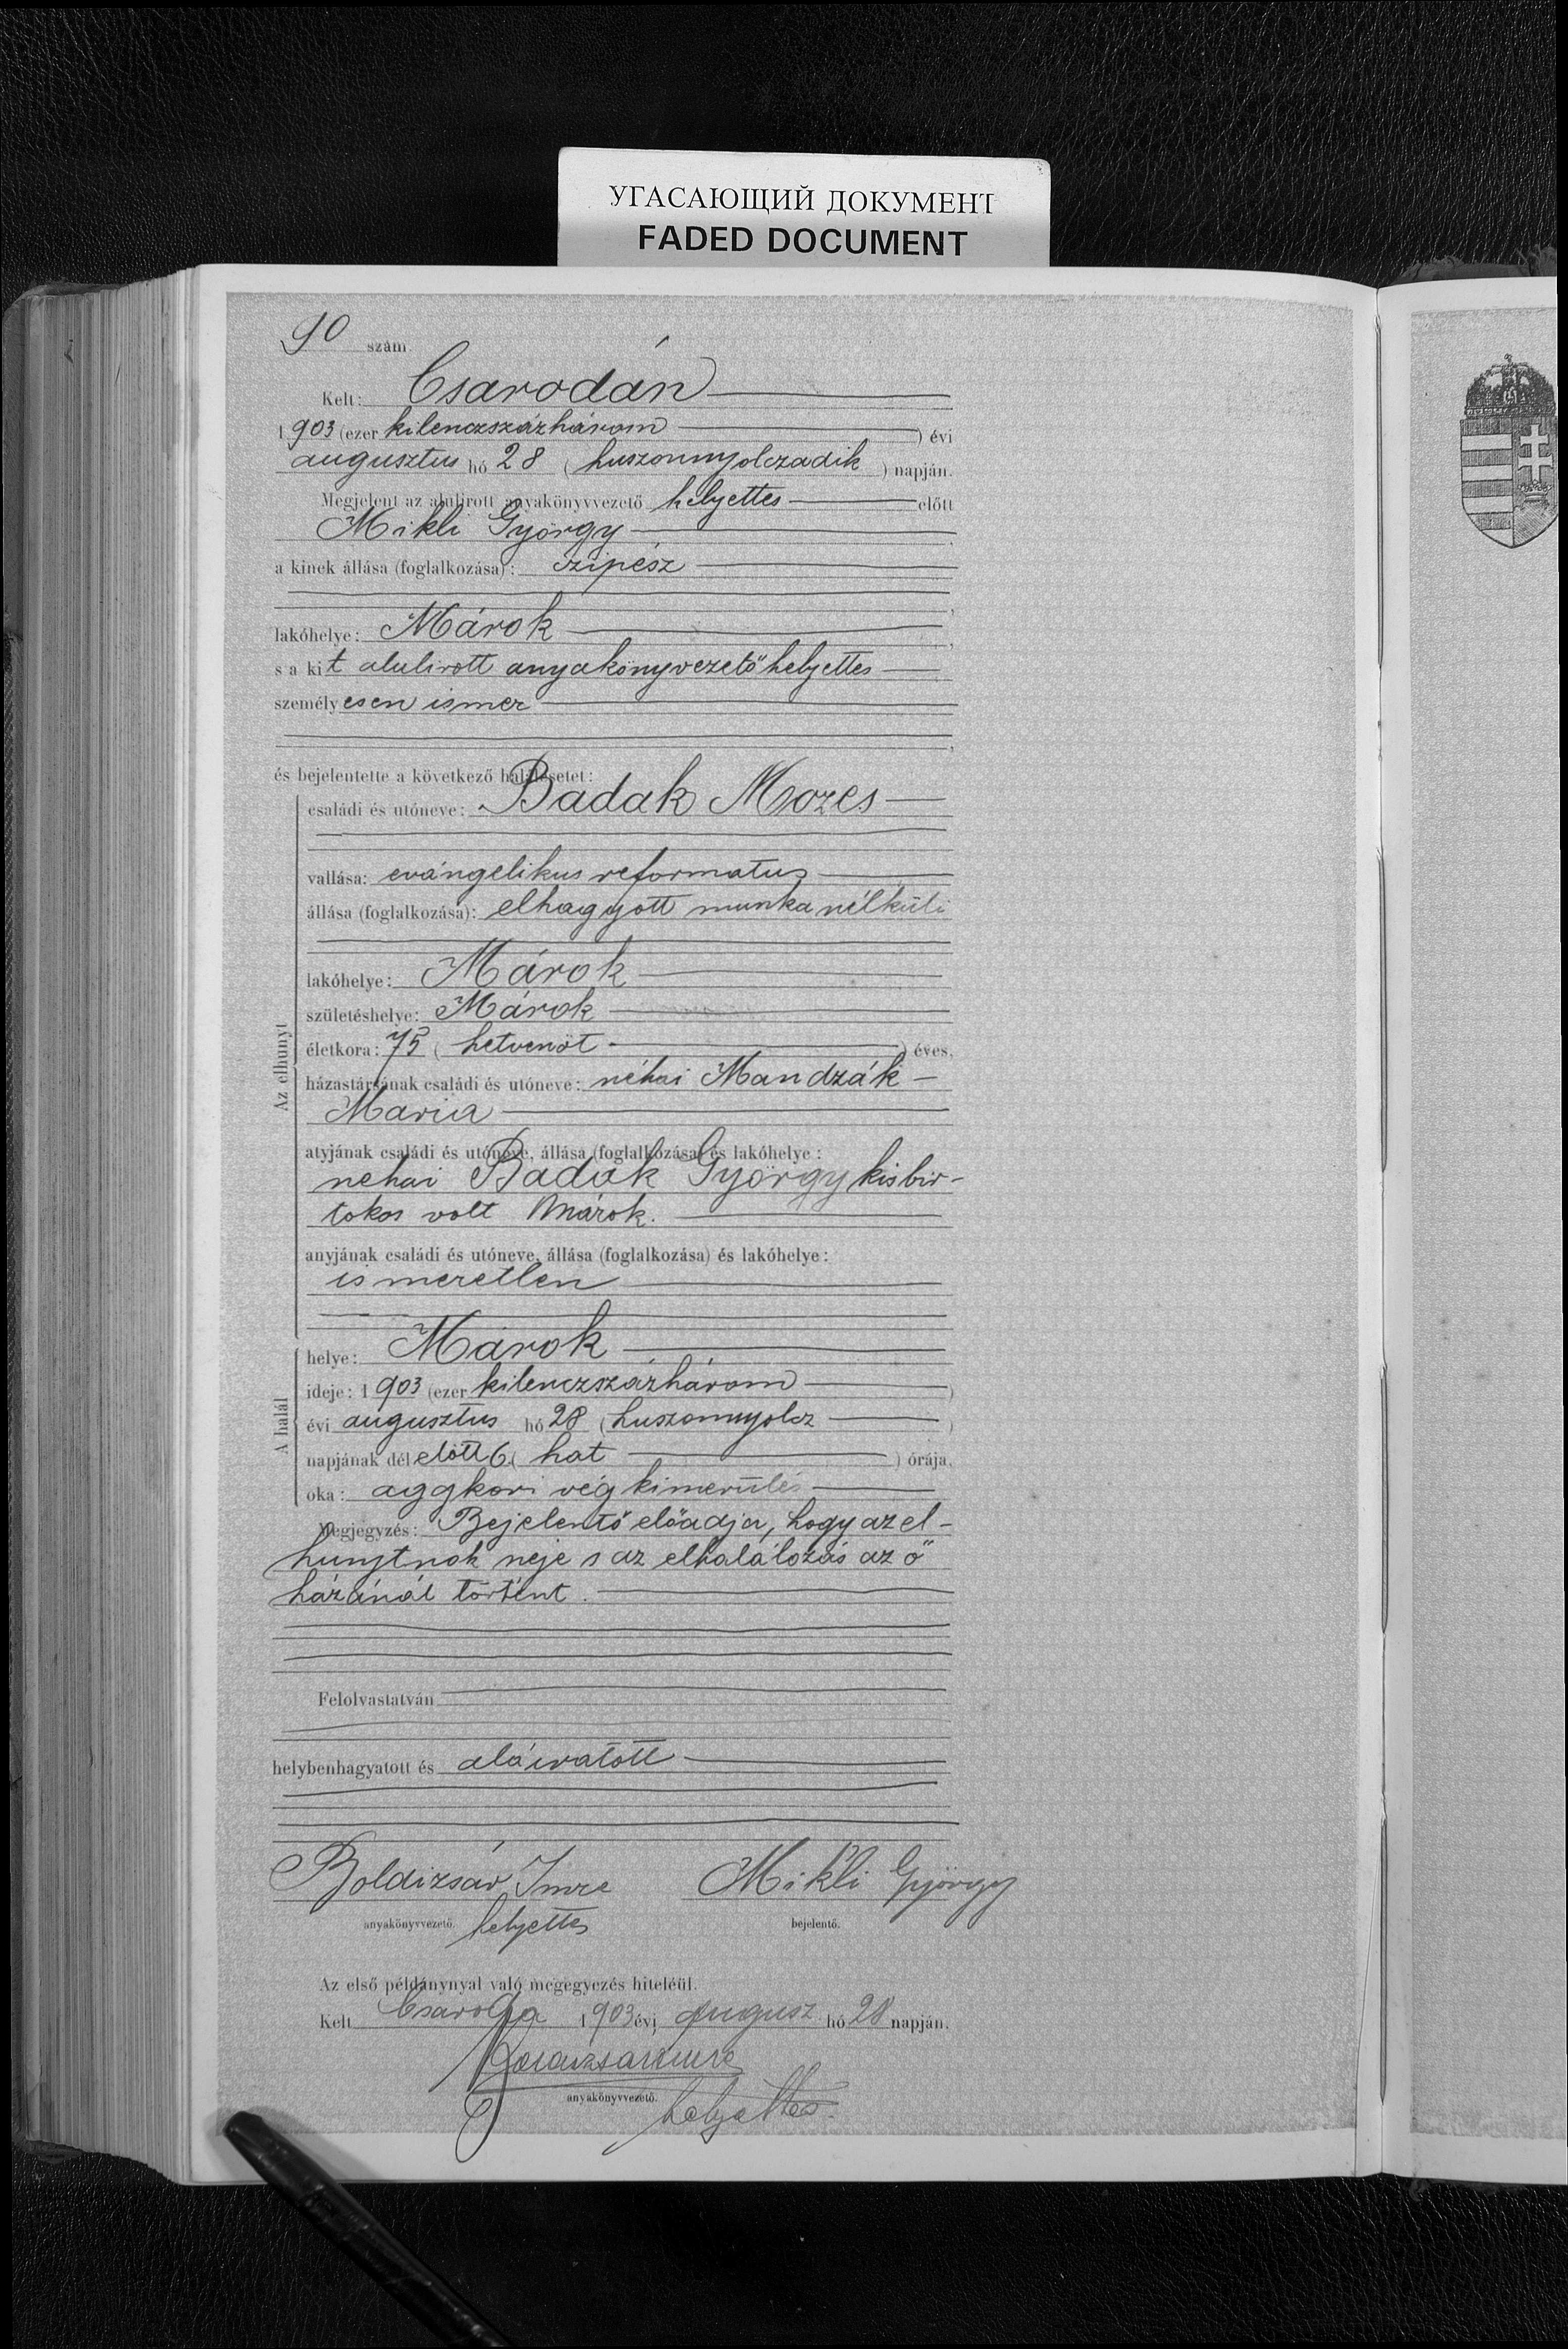 УГАСАЮЩИЙ ДОКУМЕНТ
FADED DOCUMENT
90 szám.
Kelt: Csarodán
1903 (ezer kilenczszázhárom ) évi
augusztus hó 28 ( huszonnyolczadik ) napján.
Megjelent az alulirott anyakönyvvezető helyettes előtt
Mikli György
a kinek állása (foglalkozása): czipész
lakóhelye: Márok
s a kit alulirott anyakönyvezető helyettes
személyesen ismer
és bejelentette a következő halálesetet:
Az elhunyt
családi és utóneve: Badak Mozes
vallása: evángelikus reformatus
állása (foglalkozása): elhagyott munka nélküli
lakóhelye: Márok
születéshelye: Márok
életkora: 75 ( hetvenöt ) éves,
házastársának családi és utóneve: néhai Mandzák
Maria
atyjának családi és utóneve, állása (foglalkozása) és lakóhelye:
nehai Badak György kisbir-
tokos volt Márok.
anyjának családi és utóneve, állása (foglalkozása) és lakóhelye:
ismeretlen
A halál
helye: Márok
ideje: 1903 (ezer kilenczszázhárom )
évi augusztus hó 28 ( huszonnyolcz )
napjának délelőtt 6 ( hat ) órája,
oka: aggkori végkimerülés
Megjegyzés: Bejelentő előadja, hogy az el-
hunytnok neje s az elhalálozás az ő
házánál történt.
Felolvastatván
helybenhagyatott és aláiratott
Boldizsár Imre Mikli György
anyakönyvvezető. helyettes bejelentő.
Az első példánynyal való megegyezés hiteléül.
Kelt Csaroda 1903 évi augusz hó 28 napján.
Boldizsár Imre
anyakönyvvezető. helyettes.